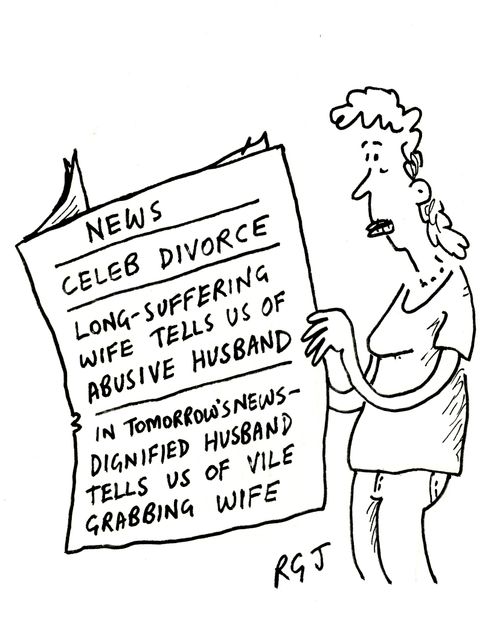 NEWS
CELEB DIVORCE
LONG-SUFFERING
WIFE TELLS US OF
ABUSIVE HUSBAND
IN TOMORROW'S NEWS-
DIGNIFIED HUSBAND
TELLS US OF VILE
GRABBING WIFE
RGJ